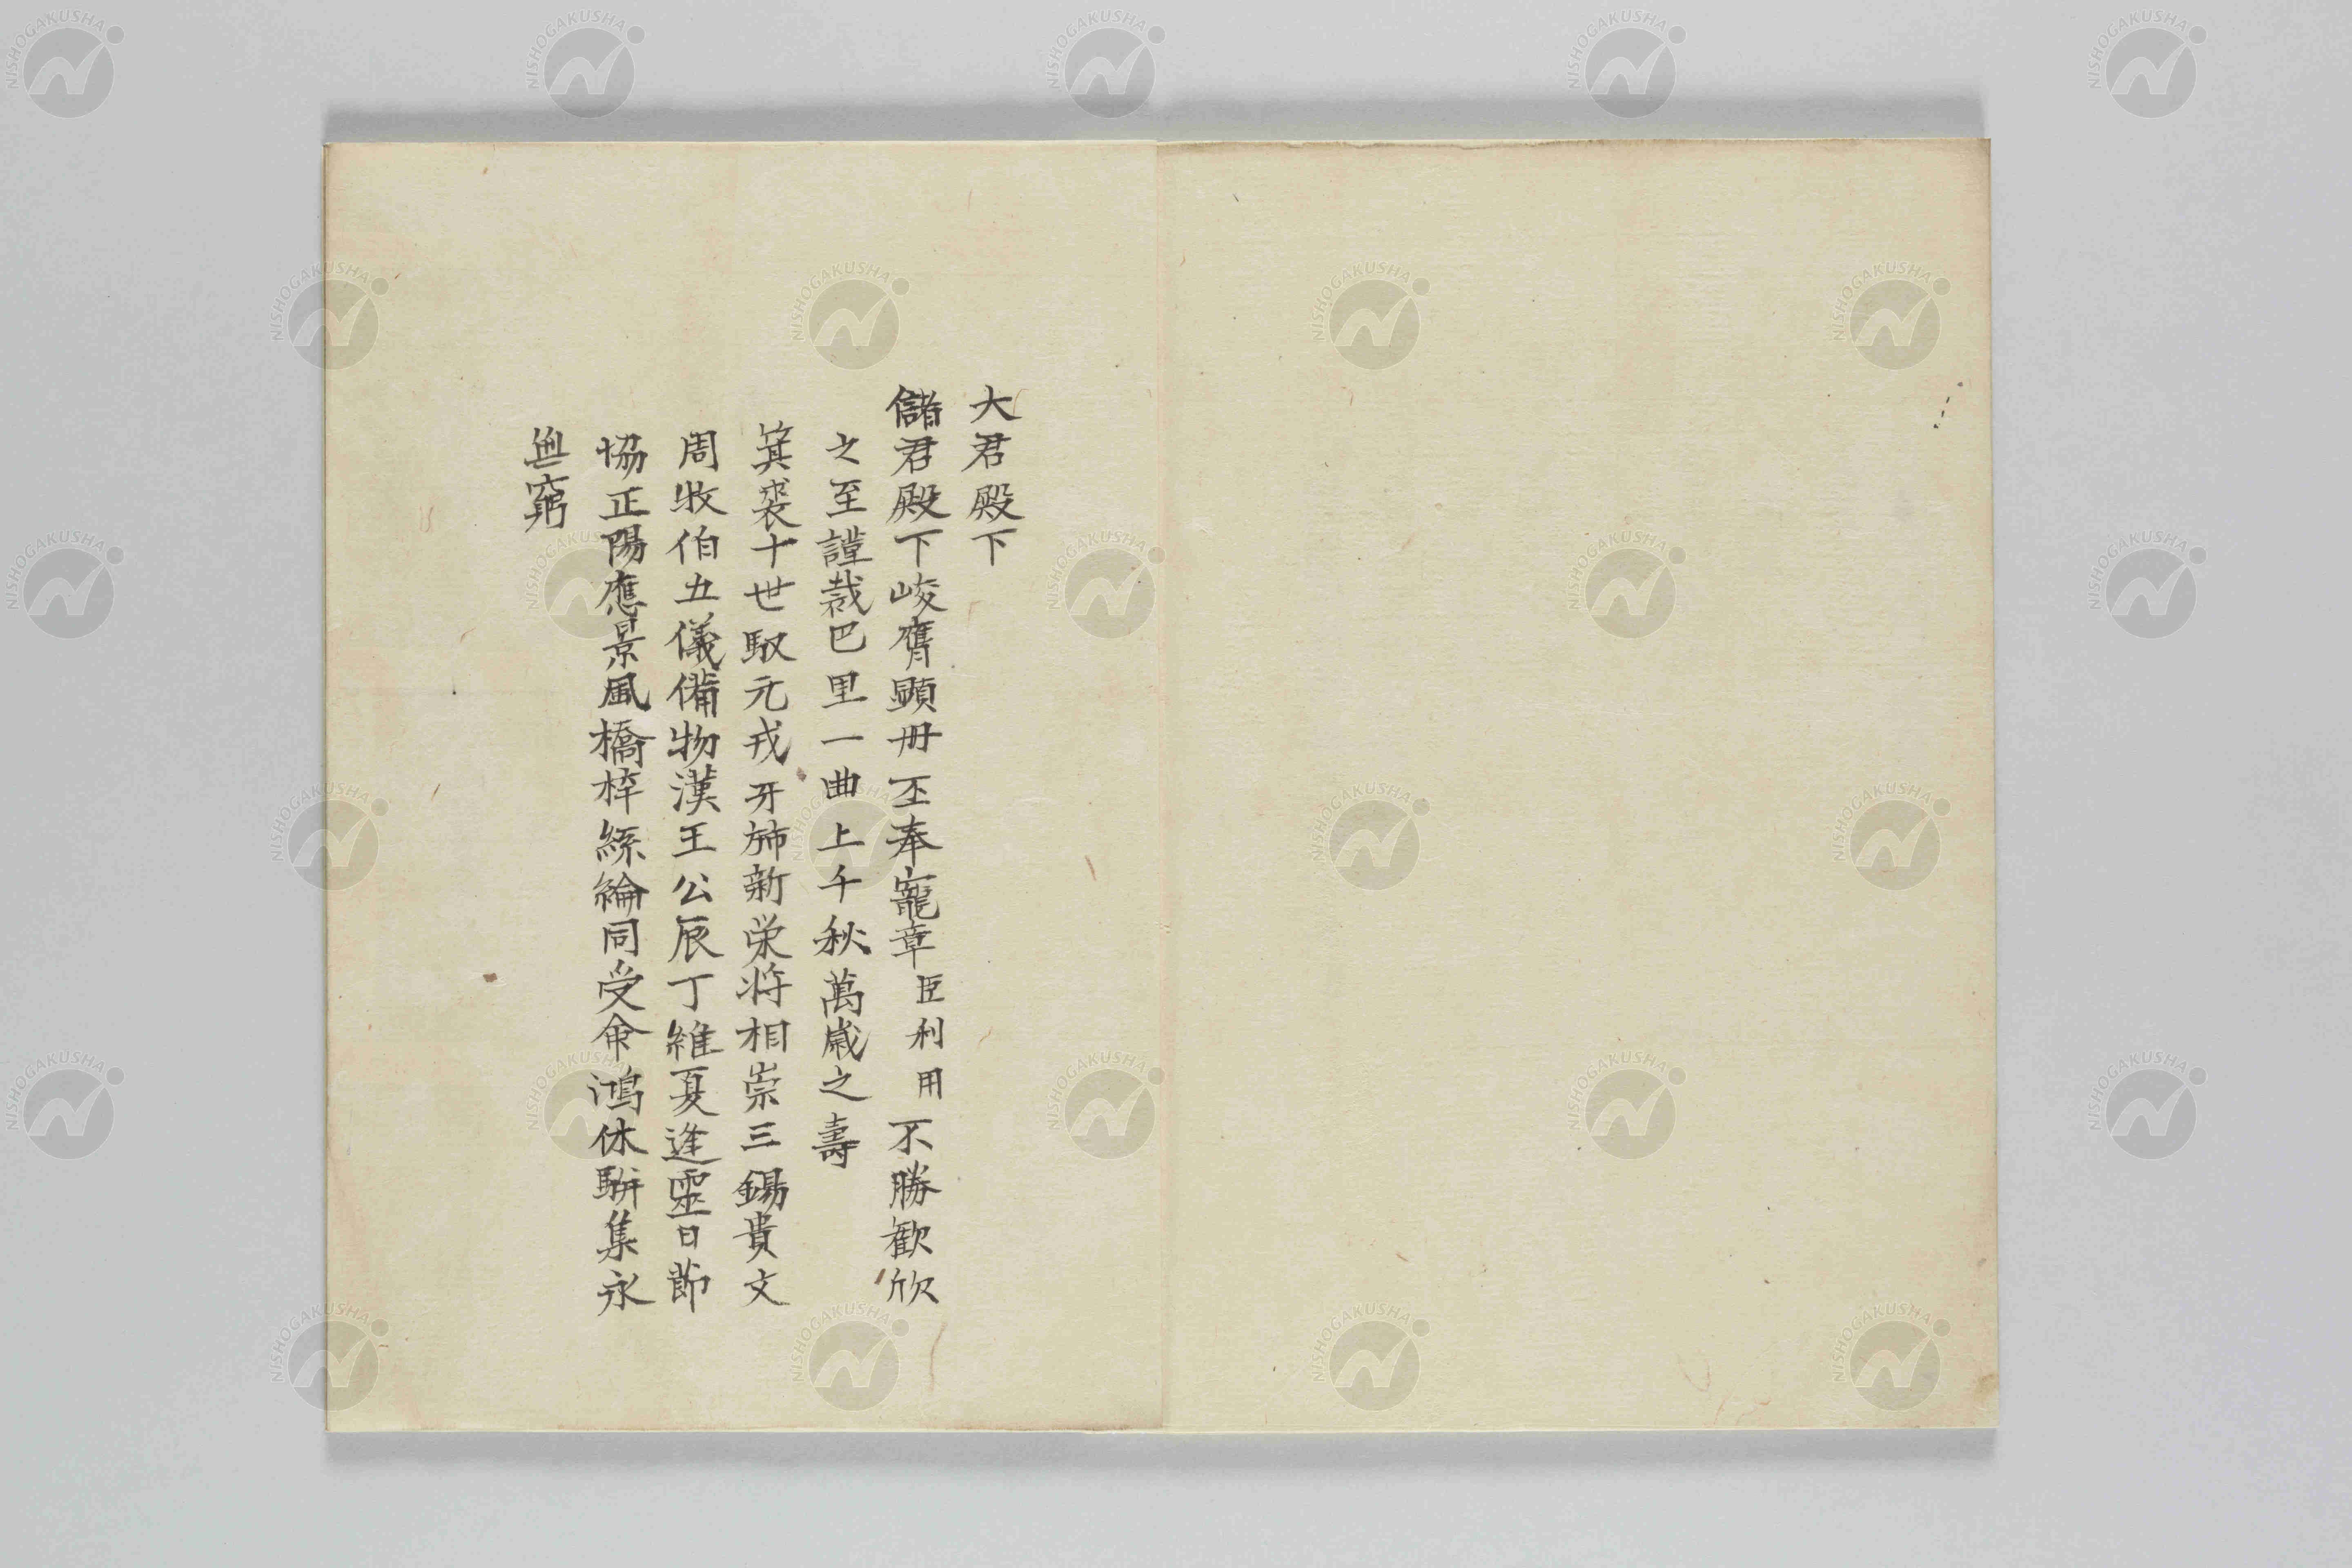 大君殿下
儲君殿下峻膺顕冊丕奉寵章臣利用不勝歓欣
之至謹裁巴里一曲上千秋萬歳之壽
箕裘十世馭元戎牙斾新栄将相崇三錫貴文
周牧伯五儀備物漢王公辰丁維夏逢靈日節
協正陽應景風橋梓絲綸同受命鴻休駢集永
無窮
NISHOGAKUSHA